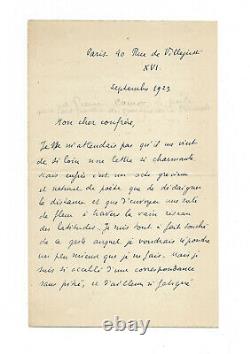 Paris 40 Rue de Villejust
XVI.
Septembre 1923
Mon cher confrère,
Je ne m'attendais pas qu'il me vint
de si loin une lettre si charmante
Mais enfin c'est un acte gracieux
et naturel de poète que de dédaigner
la distance et que d'envoyer une
de fleur à travers le vain réseau
des latitudes. Je suis tout à fait touché
de ce geste auquel je voudrais répondre
un peu mieux que je ne fais. Mais je
suis si accablé d'une correspondance
sans pitié, et d'ailleurs si fatigué